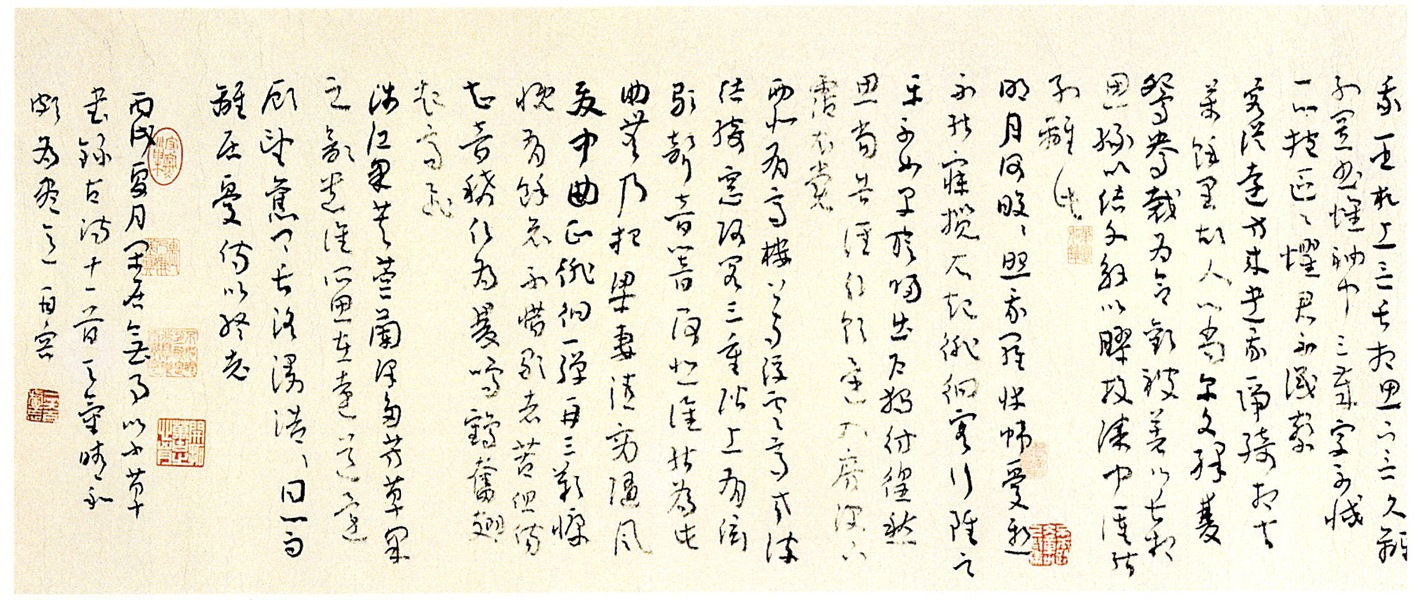 我一書札上言長相思下言久離
別置書懷袖中三歲字不滅
一心抱區〻懼君不識察
客從遠方來遺我一端綺相去
萬餘里故人心尚爾文綵雙
鴛鴦裁為合歡被著以長相
思緣以結不解以膠投漆中誰能
別離此
明月何皎〻照我羅床幃憂愁
不能寐攬衣起徘徊客行雖云
樂不如早旋歸出戶獨彷徨愁
思當告誰引領還入房淚下
霑衣裳
西北有高樓上與浮雲齊交疏
結綺窗阿閣三重階上有絃
歌聲音響何悲誰能為此
曲無乃杞梁妻清商隨風
發中曲正徘徊一彈再三歎慷
慨有餘哀不惜歌者苦但傷
知音稀願為雙鳴鶴奮翅
起高飛
涉江采芙蓉蘭澤多芳草采
之欲遺誰所思在遠道還
顧望舊鄉長路漫浩〻同心而
離居憂傷以終老
丙戌夏月閑居無事以小草
書錄古詩十一首天氣晴和
頗為盡意